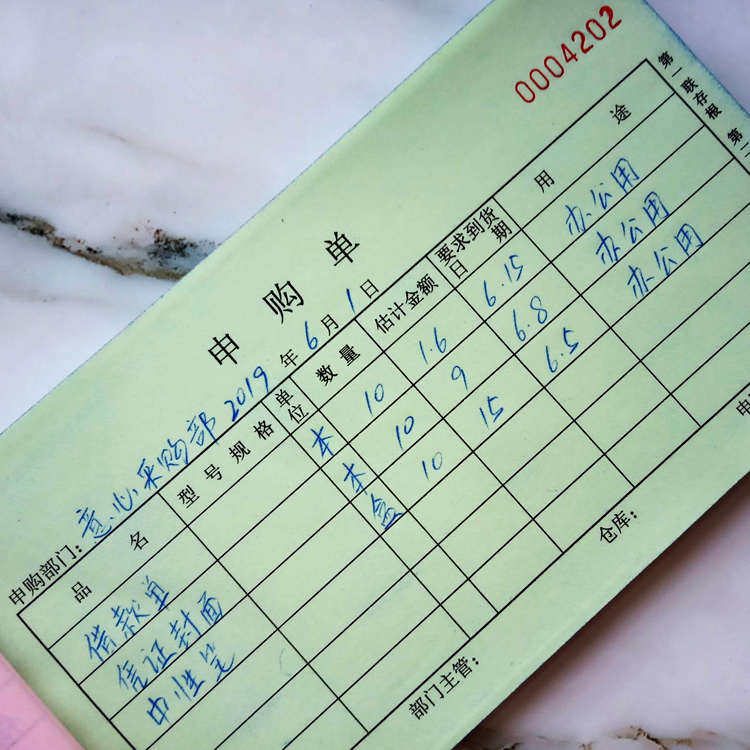 0004202
第一联存根 第二
申购单
申购部门：意心采购部 2019年6月1日
品名 型号规格 单位 数量 估计金额 要求到货日期 用途
借款单 本 10 1.6 6.15 办公用
凭证封面 本 10 9 6.8 办公用
中性笔 盒 10 15 6.5 办公用
部门主管： 仓库：